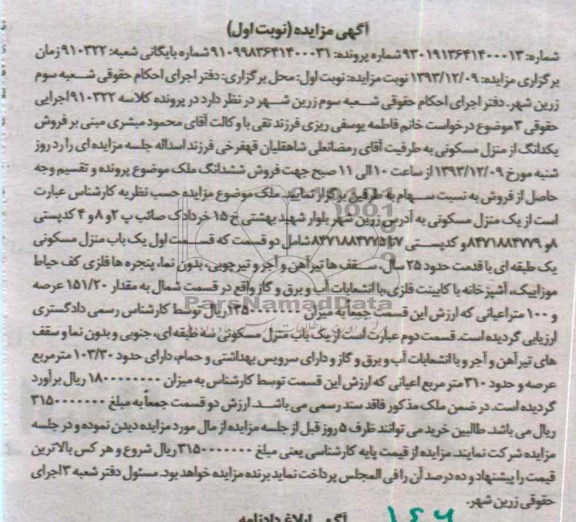 آگهی مزایده (نوبت اول)
شماره: ۹۳۰۱۹۱۳۶۴۱۴۰۰۰۱۳ شماره پرونده: ۹۱۰۹۹۸۳۶۴۱۴۰۰۰۳۱ شماره بایگانی شعبه: ۹۱۰۳۲۲ زمان
برگزاری مزایده: ۱۳۹۳/۱۲/۰۹ نوبت مزایده: نوبت اول: محل برگزاری: دفتر اجرای احکام حقوقی شعبه سوم
زرین شهر. دفتر اجرای احکام حقوقی شعبه سوم زرین شهر در نظر دارد در پرونده کلاسه ۹۱۰۳۲۲ اجرایی
حقوقی ۳ موضوع درخواست خانم فاطمه یوسفی ریزی فرزند تقی با وکالت آقای محمود مبشری مبنی بر فروش
یکدانگ از منزل مسکونی به طرفیت آقای رمضانعلی شاهقلیان قهفرخی فرزند اسداله جلسه مزایده ای را در روز
شنبه مورخ ۱۳۹۳/۱۲/۰۹ از ساعت ۱۰ الی ۱۱ صبح جهت فروش ششدانگ ملک موضوع پرونده و تقسیم وجه
حاصل از فروش به نسبت سهام به طرفین برگزار نماید. ملک موضوع مزایده حسب نظریه کارشناس عبارت
است از یک منزل مسکونی به آدرس زرین شهر بلوار شهید بهشتی خ ۱۵ خرداد ک صائب پ ۲ و ۸ و ۴ کدپستی
۸ و ۸۴۷۱۸۸۴۷۷۹ و کدپستی ۷ تا ۸۴۷۱۸۸۴۷۷۵ شامل دو قسمت که قسمت اول یک باب منزل مسکونی
یک طبقه ای با قدمت حدود ۲۵ سال، سقف ها تیرآهن و آجر و تیرچوبی، بدون نما، پنجره ها فلزی کف حیاط
موزاییک، آشپزخانه با کابینت فلزی با انشعابات آب و برق و گاز واقع در قسمت شمال به مقدار ۱۵۱/۲۰ عرصه
و ۱۰۰ متر اعیانی که ارزش این قسمت جمعاً به میزان ۱۳۵۰۰۰۰۰۰۰ ریال توسط کارشناس رسمی دادگستری
ارزیابی گردیده است. قسمت دوم عبارت است از یک باب منزل مسکونی سه طبقه ای، جنوبی و بدون نما و سقف
های تیرآهن و آجر و با انشعابات آب و برق و گاز و دارای سرویس بهداشتی و حمام، دارای حدود ۱۰۳/۳۰ مترمربع
عرصه و حدود ۳۱۰ متر مربع اعیانی که ارزش این قسمت توسط کارشناس به میزان ۱۸۰۰۰۰۰۰۰۰ ریال برآورد
گردیده است. در ضمن ملک مذکور فاقد سند رسمی می باشد. ارزش دو قسمت جمعاً به مبلغ ۳۱۵۰۰۰۰۰۰۰
ریال می باشد. طالبین خرید می توانند ظرف ۵ روز قبل از جلسه مزایده از مال مورد مزایده دیدن نموده و در جلسه
مزایده شرکت نمایند. مزایده از قیمت پایه کارشناسی یعنی مبلغ ۳۱۵۰۰۰۰۰۰۰ ریال شروع و هر کس بالاترین
قیمت را پیشنهاد و ده درصد آن را فی المجلس پرداخت نماید برنده مزایده خواهد بود. مسئول دفتر شعبه ۳ اجرای
حقوقی زرین شهر.
ParsNamadData
آگهی ابلاغ دادنامه